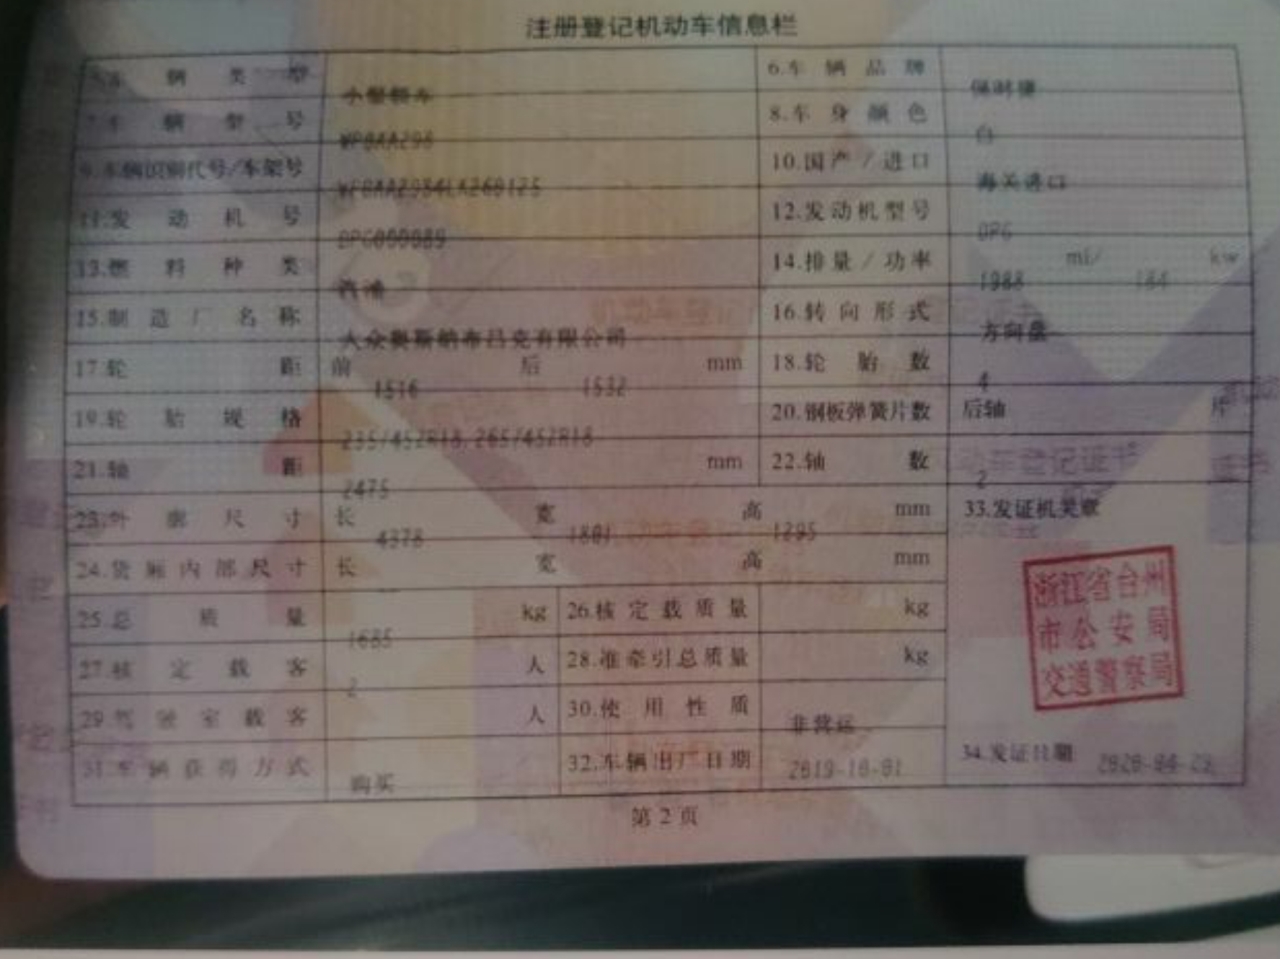 注册登记机动车信息栏
5.车辆类型 小型轿车 6.车辆品牌 保时捷
7.车辆型号 WP0AA298 8.车身颜色 白
9.车辆识别代号/车架号 10.国产/进口 海关进口
11.发动机号 DPG000089 12.发动机型号 DPG
13.燃料种类 汽油 14.排量/功率 1988 ml/ 184 kw
15.制造厂名称 大众奥斯纳布吕克有限公司 16.转向形式 方向盘
17.轮距 前 1516 后 1532 mm 18.轮胎数 4
19.轮胎规格 235/45ZR18,265/45ZR18 20.钢板弹簧片数 后轴 片
21.轴距 2475 mm 22.轴数 2
23.外廓尺寸 长 4378 宽 1801 高 1295 mm 33.发证机关章
24.货厢内部尺寸 长 宽 高 mm
浙江省台州
市公安局
交通警察局
25.总质量 1685 kg 26.核定载质量 kg
27.核定载客 2 人 28.准牵引总质量 kg
29.驾驶室载客 人 30.使用性质 非营运
31.车辆获得方式 购买 32.车辆出厂日期 2019-10-01 34.发证日期
第2页